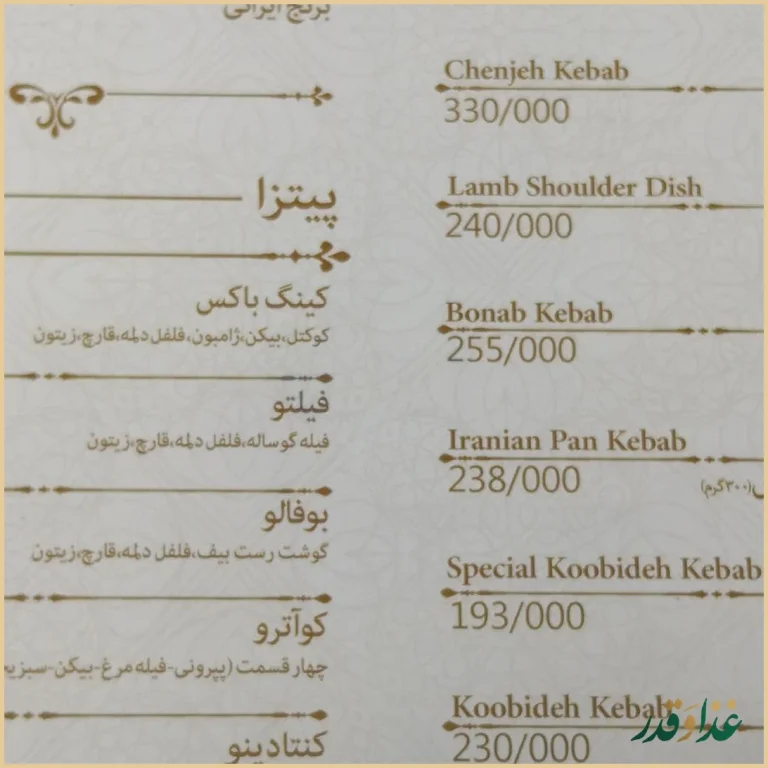 برنج ایرانی
پیتزا
کینگ باکس
کوکتل،بیکن،ژامبون،فلفل دلمه،قارچ،زیتون
فیلتو
فیله گوساله،فلفل دلمه،قارچ،زیتون
بوفالو
گوشت رست بیف،فلفل دلمه،قارچ،زیتون
کوآترو
چهار قسمت (پپرونی-فیله مرغ-بیکن-
کنتادینو
Chenjeh Kebab
330/000
Lamb Shoulder Dish
240/000
Bonab Kebab
255/000
Iranian Pan Kebab
238/000
(۳۰۰گرم)
Special Koobideh Kebab
193/000
Koobideh Kebab
230/000
غذا و قدر